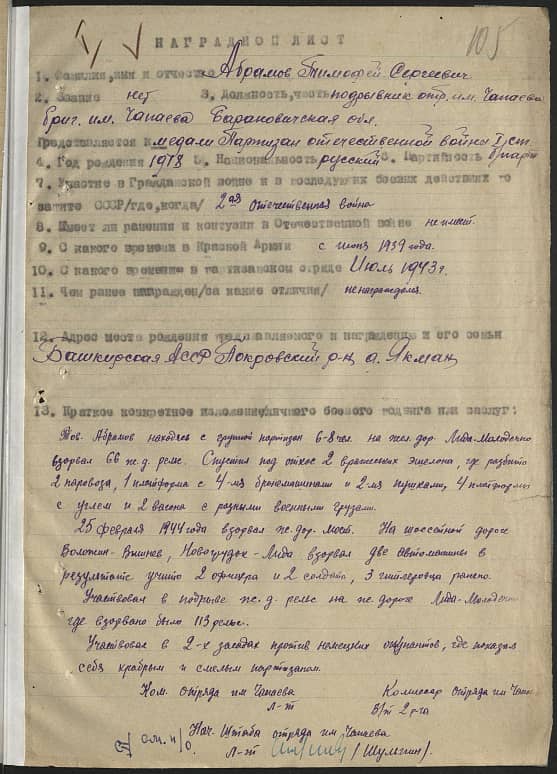 105
НАГРАДНОЙ ЛИСТ
1. Фамилия, имя и отчество Абрамов Тимофей Сергеевич
2. Звание нет 3. Должность, часть подрывник отр. им. Чапаева
бриг. им. Чапаева Барановичская обл.
Представляется к медали Партизан отечественной войны I ст.
4. Год рождения 1918 5. Национальность русский 6. Партийность б/парт
7. Участие в Гражданской войне и в последующих боевых действиях по
защите СССР/где, когда/ 2ая отечественная война
8. Имеет ли ранения и контузии в Отечественной войне не имеет.
9. С какого времени в Красной Армии с июня 1939 года.
10. С какого времени в партизанском отряде Июль 1943 г.
11. Чем ранее награжден/за какие отличия/ не награждался.
12. Адрес места рождения представляемого к награждению и его семьи
Башкирская АССР Покровский р-н д. Якман
13. Краткое конкретное изложение личного боевого подвига или заслуг:
Тов. Абрамов находясь с группой партизан 6-8 чел. на жел. дор. Лида-Молодечно
взорвал 66 ж.д. рельс. Спустил под откос 2 вражеских эшелона, где разбито
2 паровоза, 1 платформа с 4-мя бронемашинами и 2-мя пушками, 4 платформы
с углем и 2 вагона с разными военными грузами.
25 февраля 1944 года взорвал ж. дор. мост. На шоссейной дороге
Воложин-Вишнев, Новогрудок-Лида взорвал две автомашины в
результате убито 2 офицера и 2 солдата, 3 гитлеровца ранено.
Участвовал в подрыве ж.д. рельс на ж. дороге Лида-Молодечно
где взорвано было 113 рельс.
Участвовал в 2-х засадах против немецких оккупантов, где показал
себя храбрым и смелым партизаном.
Ком. отряда им Чапаева Комиссар отряда им Чапа
л-т
Нач. Штаба отряда им. Чапаева.
л-т (Шулягин).